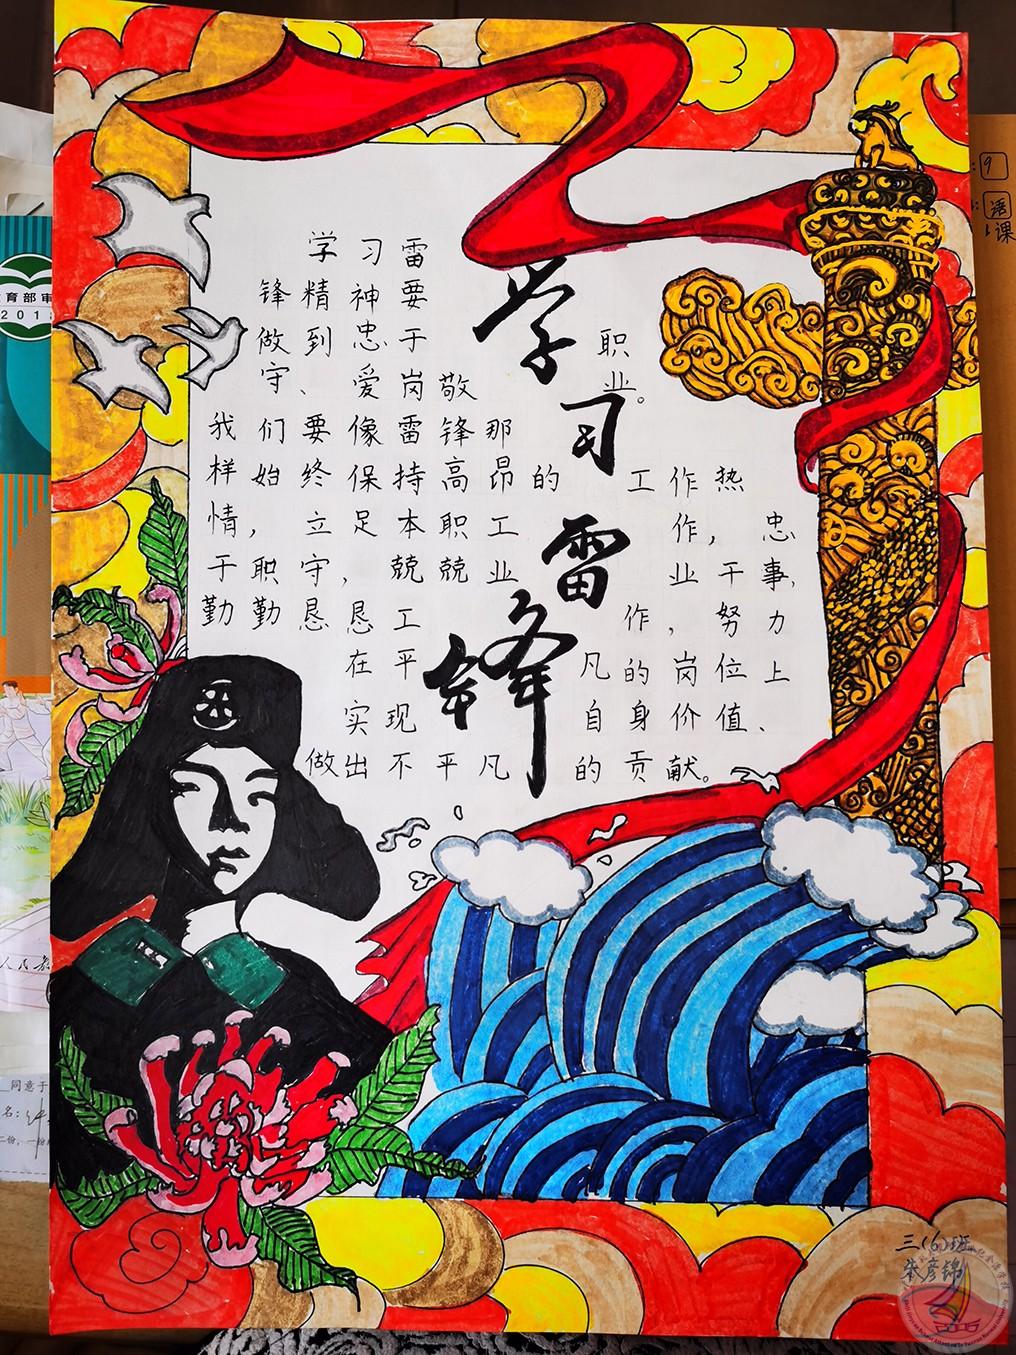 学习雷
锋精神要
做到忠于职
守、爱岗敬业。
我们要像雷锋那
样始终保持高昂的工作热
情，立足本职工作，忠
于职守，兢兢业业干事，
勤勤恳恳工作，努力
在平凡的岗位上
实现自身价值、
做出不平凡的贡献。
学习雷锋
三(6)班
朱彦锦
育部审
2013
人民教
同意于
名：
二份，一份
9
语
课